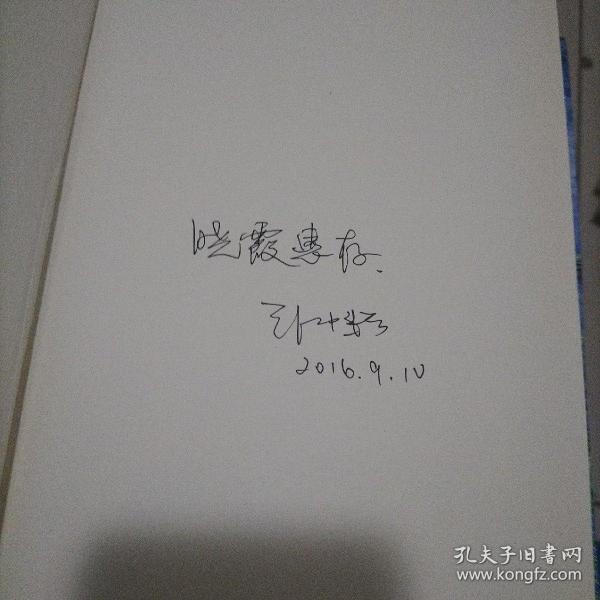 晓霞惠存.
2016.9.10
孔夫子旧书网
www.kongfz.com